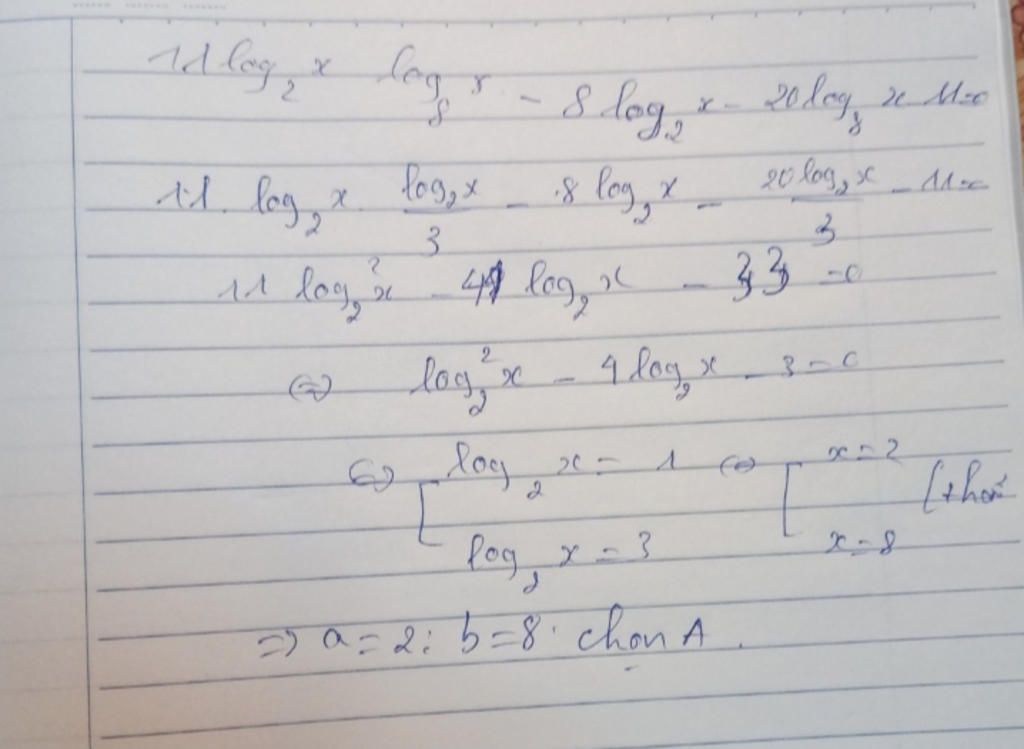 11 log₂ x log₈ x - 8 log₂ x - 20 log₈ x 11=0
11. log₂ x . log₂x/3 - 8 log₂ x - 20 log₂ x/3 - 11=
11 log₂² x - 44 log₂ x - 33 =0
⇔ log₂² x - 4 log₂ x - 3 = 0
⇔ [ log₂ x = 1 ⇔ [ x = 2
log₂ x = 3 x = 8
⇒ a = 2 ; b = 8 . chọn A .